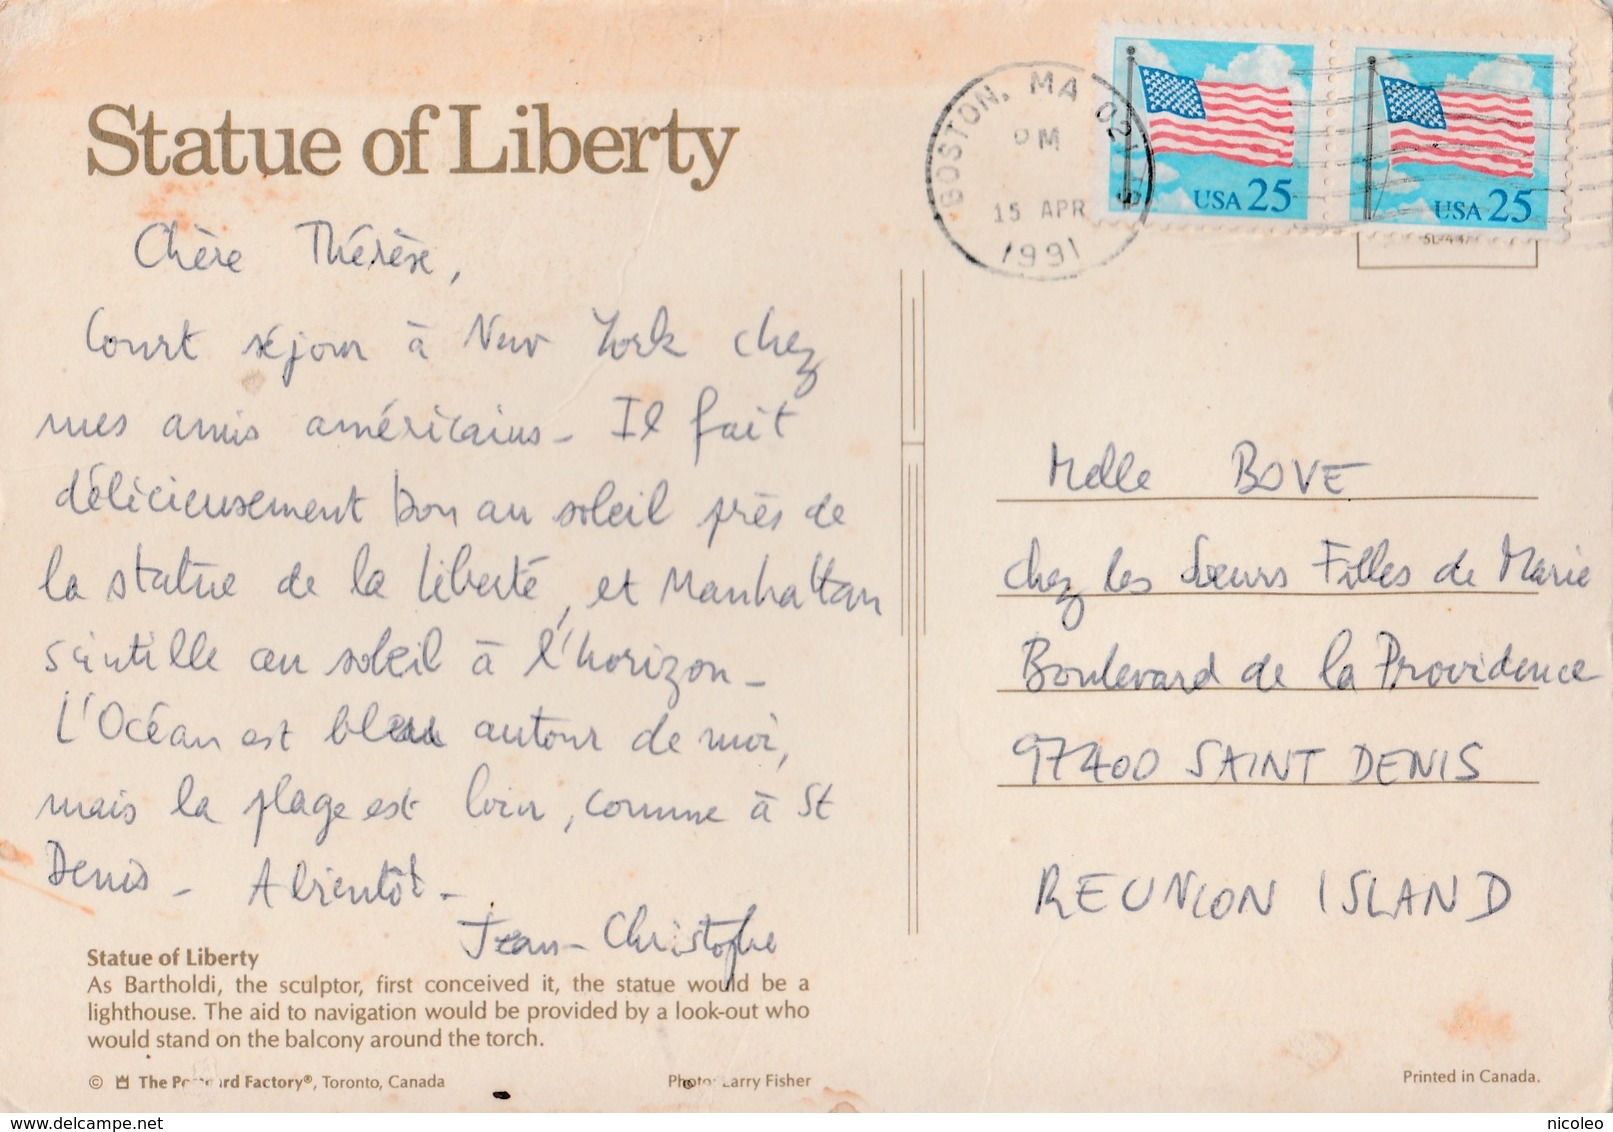 Statue of Liberty
Chère Thérèse,
Court séjour à New York chez
mes amis américains - Il fait
délicieusement bon au soleil près de
la statue de la liberté, et Manhattan
scintille au soleil à l'horizon -
L'Océan est bleu autour de moi,
mais la plage est loin, comme à St
Denis - A bientôt -
Jean-Christophe
Statue of Liberty
As Bartholdi, the sculptor, first conceived it, the statue would be a
lighthouse. The aid to navigation would be provided by a look-out who
would stand on the balcony around the torch.
© The Postcard Factory®, Toronto, Canada
Photo: Larry Fisher
BOSTON, MA
PM
15 APR
1991
USA 25
USA 25
Melle BOVE
chez les Soeurs Filles de Marie
Boulevard de la Providence
97400 SAINT DENIS
REUNION ISLAND
Printed in Canada.
delcampe.net
nicoleo